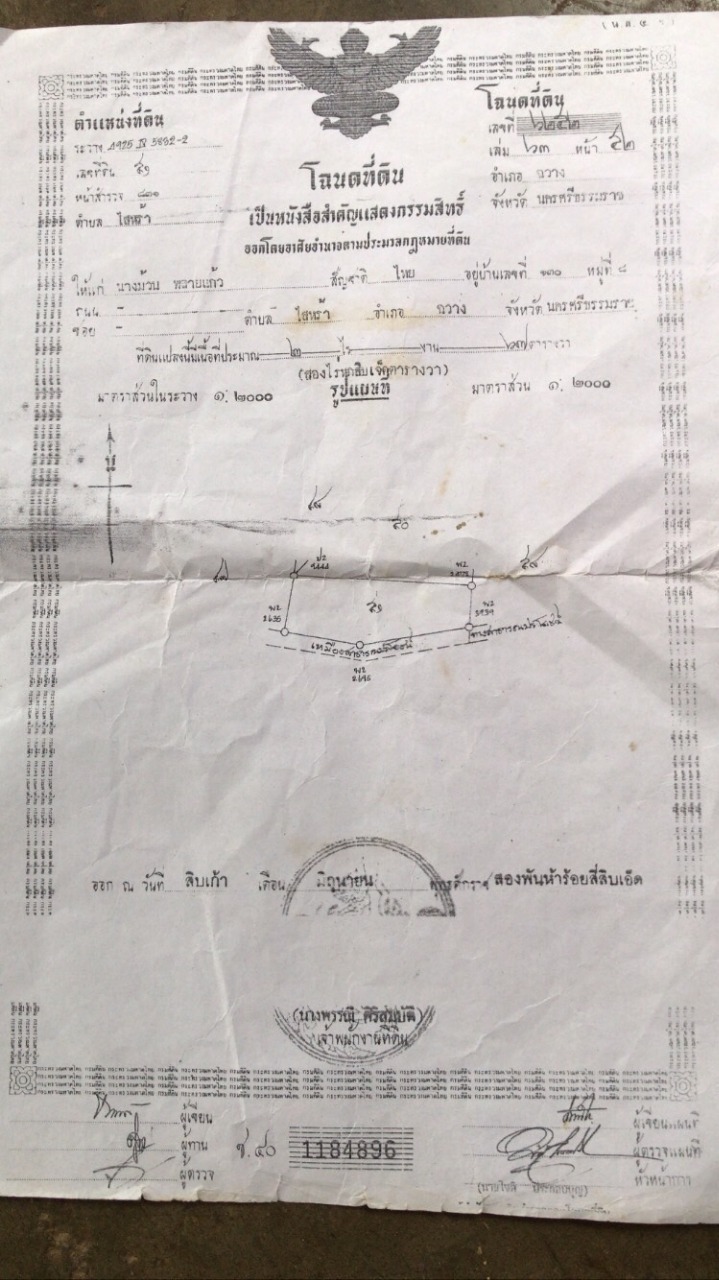 (น.ส. ๔
ตำแหน่งที่ดิน
ระวาง 4925 IV 5832-2
เลขที่ดิน ๕๑
หน้าสำรวจ ๘๓๑
ตำบล ไสหร้า
โฉนดที่ดิน
เลขที่ ๖๒๕๒
เล่ม ๖๓ หน้า ๕๒
อำเภอ ฉวาง
จังหวัด นครศรีธรรมราช
โฉนดที่ดิน
เป็นหนังสือสำคัญแสดงกรรมสิทธิ์
ออกโดยอาศัยอำนาจตามประมวลกฎหมายที่ดิน
ให้แก่ นางม้วน หวายแก้ว สัญชาติ ไทย อยู่บ้านเลขที่ ๑๓๐ หมู่ที่ ๘
ถนน - ซอย - ตำบล ไสหร้า อำเภอ ฉวาง จังหวัด นครศรีธรรมราช
ที่ดินแปลงนี้มีเนื้อที่ประมาณ ๒ ไร่ งาน ๖๗ ตารางวา
(สองไร่หกสิบเจ็ดตารางวา)
มาตราส่วนในระวาง ๑:๒๐๐๐ รูปแผนที่ มาตราส่วน ๑:๒๐๐๐
น
๕๐
๕๑
เหมืองสาธารณประโยชน์
ทางสาธารณประโยชน์
ออก ณ วันที่ สิบเก้า เดือน มิถุนายน พุทธศักราช สองพันห้าร้อยสี่สิบเอ็ด
(นางพรรณี ศิริสมบัติ)
เจ้าพนักงานที่ดิน
ผู้เขียน
ผู้ทาน
ผู้ตรวจ
ช.๔๐ 1184896
ผู้เขียนแผนที่
ผู้ตรวจแผนที่